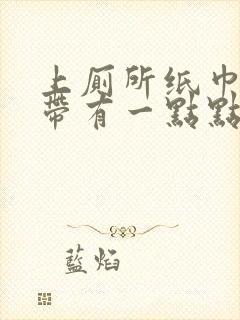 上厠所纸巾
帶有一點點
藍焰